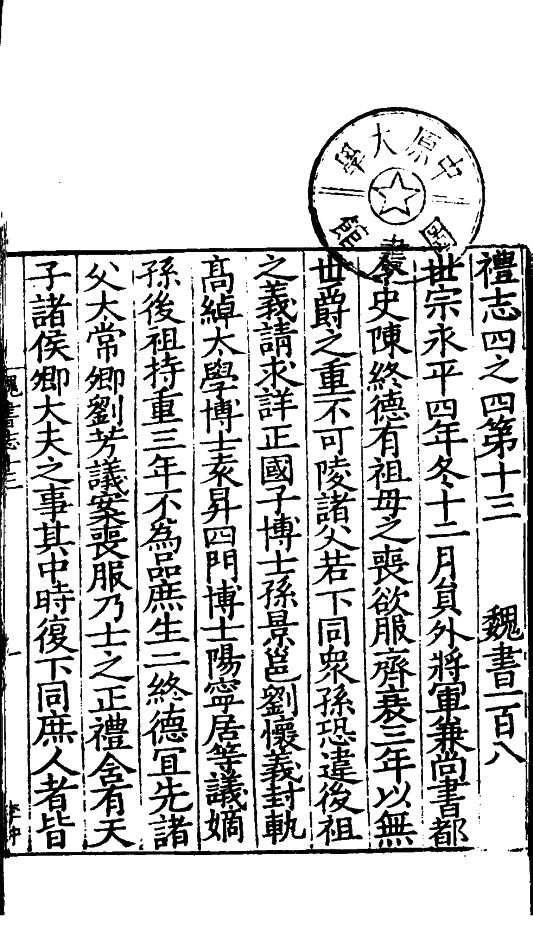 中原大學
圖書館
禮志四之四第十三　魏書一百八
世宗永平四年冬十二月員外將軍兼尚書都
令史陳終德有祖母之喪欲服齊衰三年以無
世爵之重不可陵諸父若下同衆孫恐違後祖
之義請求詳正國子博士孫景邕劉懷義封軌
高綽太學博士袁昇四門博士陽寧居等議嫡
孫後祖持重三年不為品庶生二終德宜先諸
父太常卿劉芳議案喪服乃士之正禮含有天
子諸侯卿大夫之事其中時復下同庶人者皆
魏書志十三
一